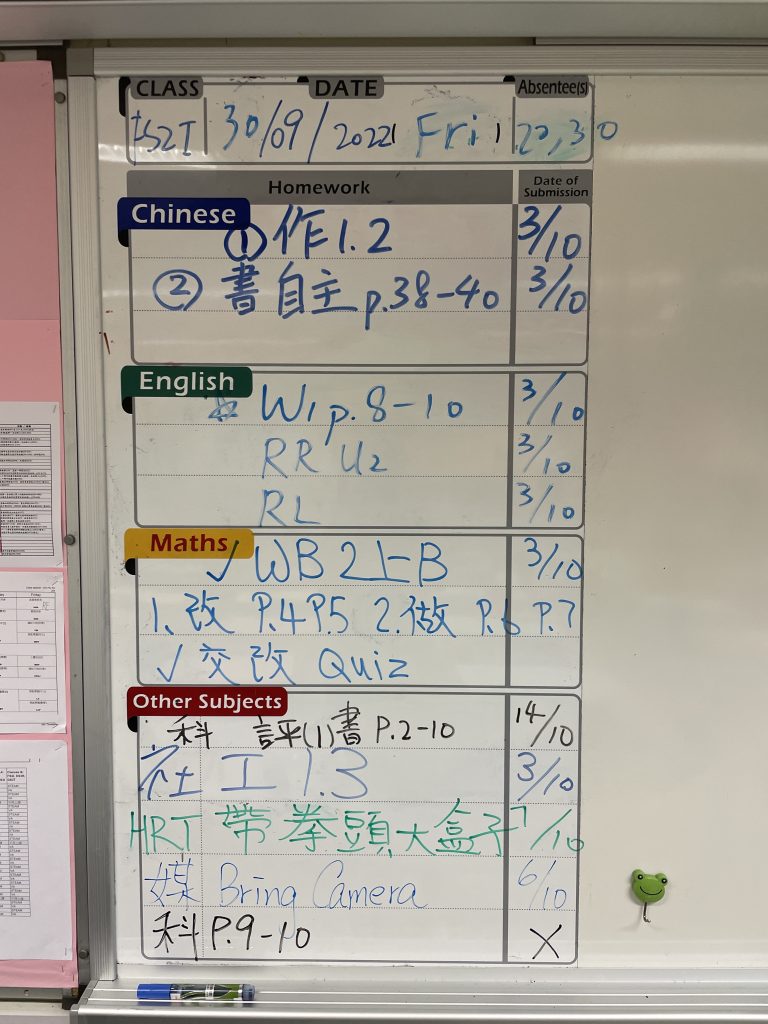 CLASS DATE Absentee(s)
S2I 30/09/2022 Fri 20,30
Homework Date of Submission
Chinese
① 作1.2 3/10
② 書自主 p.38-40 3/10
English
☆ W1 p.8-10 3/10
RR U2 3/10
RL 3/10
Maths
✓ WB 2上B 3/10
1、改 P.4 P.5 2.做 P.6 P.7
✓ 交改 Quiz
Other Subjects
科 評(1)書 P.2-10 14/10
社 工 1.3 3/10
HRT 帶拳頭大盒子 7/10
媒 Bring Camera 6/10
科 P.9-10 X